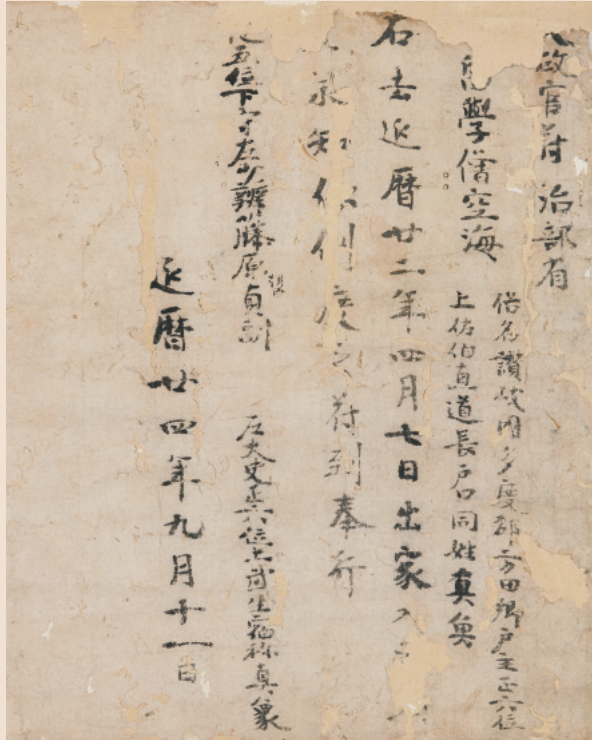 政官符 治部省
學僧空海
俗名讃岐国多度郡方田郷戸主正六位
上佐伯直道長戸口同姓真魚
右去延暦廿二年四月七日出家入
承知依例度之符到奉行
従五位下守左少辨藤原貞嗣
左大史正六位上武生宿祢真象
延暦廿四年九月十一日